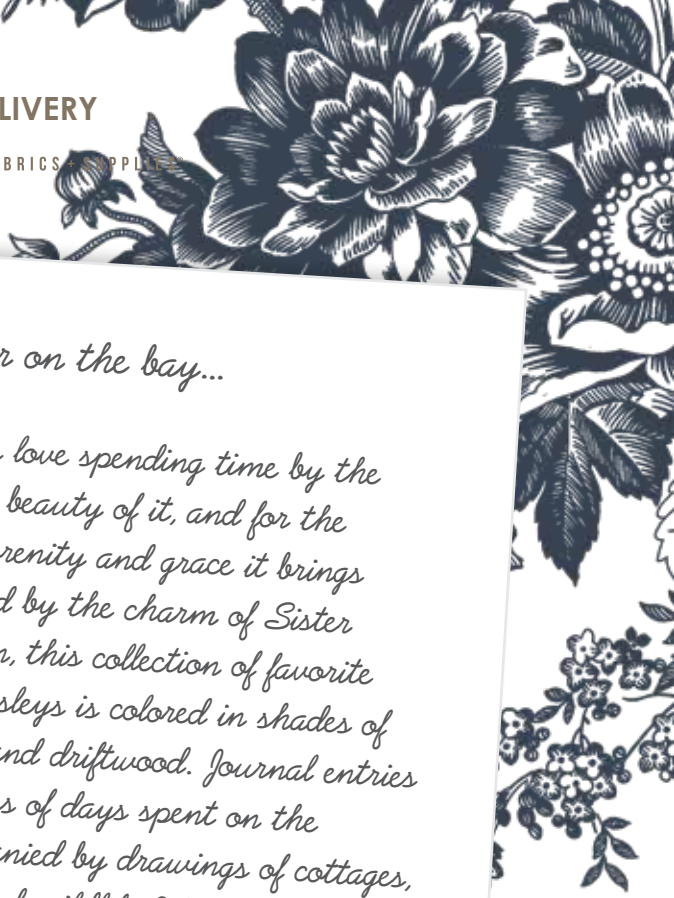 LIVERY
BRICS + SUPPLIES
r on the bay...
love spending time by the
beauty of it, and for the
renity and grace it brings
d by the charm of Sister
n, this collection of favorite
sleys is colored in shades of
nd driftwood. Journal entries
s of days spent on the
nied by drawings of cottages,